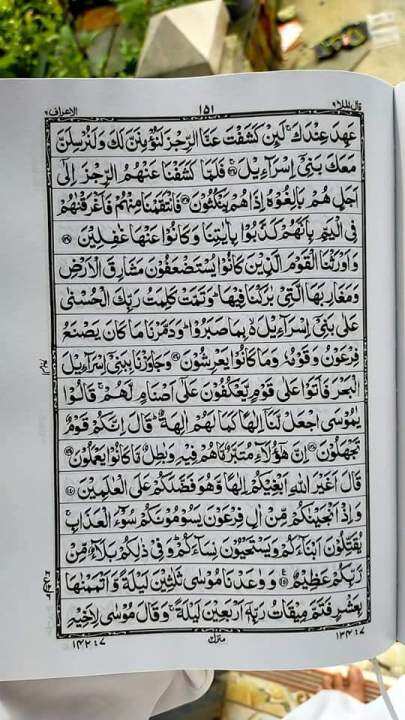 قال الملا ٩ ١٥١ الاعراف ٧
عَهِدَ عِنْدَكَ ۚ لَئِنْ كَشَفْتَ عَنَّا الرِّجْزَ لَنُؤْمِنَنَّ لَكَ وَلَنُرْسِلَنَّ
مَعَكَ بَنِیْۤ اِسْرَآءِیْلَ فَلَمَّا كَشَفْنَا عَنْهُمُ الرِّجْزَ اِلٰۤی
اَجَلٍ هُمْ بٰلِغُوْهُ اِذَا هُمْ یَنْكُثُوْنَ فَانْتَقَمْنَا مِنْهُمْ فَاَغْرَقْنٰهُمْ
فِی الْیَمِّ بِاَنَّهُمْ كَذَّبُوْا بِاٰیٰتِنَا وَكَانُوْا عَنْهَا غٰفِلِیْنَ
وَاَوْرَثْنَا الْقَوْمَ الَّذِیْنَ كَانُوْا یُسْتَضْعَفُوْنَ مَشَارِقَ الْاَرْضِ
وَمَغَارِبَهَا الَّتِیْ بٰرَكْنَا فِیْهَا ؕ وَتَمَّتْ كَلِمَتُ رَبِّكَ الْحُسْنٰی
عَلٰی بَنِیْۤ اِسْرَآءِیْلَ ۙ بِمَا صَبَرُوْا ؕ وَدَمَّرْنَا مَا كَانَ یَصْنَعُ
فِرْعَوْنُ وَقَوْمُهٗ وَمَا كَانُوْا یَعْرِشُوْنَ وَجٰوَزْنَا بِبَنِیْۤ اِسْرَآءِیْلَ
الْبَحْرَ فَاَتَوْا عَلٰی قَوْمٍ یَّعْكُفُوْنَ عَلٰۤی اَصْنَامٍ لَّهُمْ ۚ قَالُوْا
یٰمُوْسَی اجْعَلْ لَّنَاۤ اِلٰهًا كَمَا لَهُمْ اٰلِهَةٌ ؕ قَالَ اِنَّكُمْ قَوْمٌ
تَجْهَلُوْنَ اِنَّ هٰۤؤُلَآءِ مُتَبَّرٌ مَّا هُمْ فِیْهِ وَبٰطِلٌ مَّا كَانُوْا یَعْمَلُوْنَ
قَالَ اَغَیْرَ اللّٰهِ اَبْغِیْكُمْ اِلٰهًا وَّهُوَ فَضَّلَكُمْ عَلَی الْعٰلَمِیْنَ
وَاِذْ اَنْجَیْنٰكُمْ مِّنْ اٰلِ فِرْعَوْنَ یَسُوْمُوْنَكُمْ سُوْٓءَ الْعَذَابِ ۚ
یُقَتِّلُوْنَ اَبْنَآءَكُمْ وَیَسْتَحْیُوْنَ نِسَآءَكُمْ ؕ وَفِیْ ذٰلِكُمْ بَلَآءٌ مِّنْ
رَّبِّكُمْ عَظِیْمٌ وَوٰعَدْنَا مُوْسٰی ثَلٰثِیْنَ لَیْلَةً وَّاَتْمَمْنٰهَا
بِعَشْرٍ فَتَمَّ مِیْقَاتُ رَبِّهٖۤ اَرْبَعِیْنَ لَیْلَةً ۚ وَقَالَ مُوْسٰی لِاَخِیْهِ
١٣٤:٧ منزل ١٤٢:٧